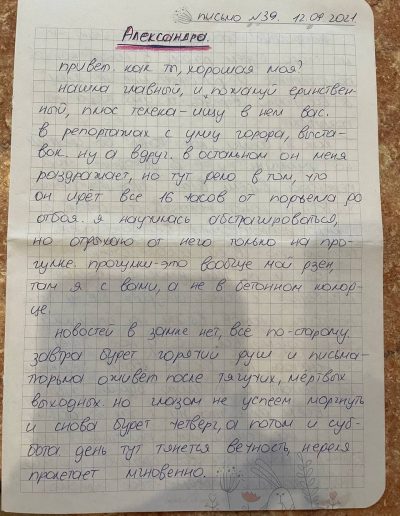 письмо №39. 12.09.2021
Александра.
привет. как ты, хорошая моя?
нашла главный, и, пожалуй единствен-
ный, плюс телека - ищу в нем вас.
в репортажах с улиц города, выста-
вок. ну а вдруг. в остальном он меня
раздражает, но тут дело в том, что
он идёт все 16 часов от подъема до
отбоя. я научилась абстрагироваться,
но отдыхаю от него только на про-
гулке. прогулки - это вообще мой дзен,
там я с вами, а не в бетонном колод-
це.
новостей в замке нет, всё по-старому.
завтра будет горячий душ и письма -
тюрьма оживёт после тягучих, мёртвых
выходных. но глазом не успеем моргнуть
и снова будет четверг, а потом и суб-
бота. день тут тянется вечность, неделя
пролетает мгновенно.